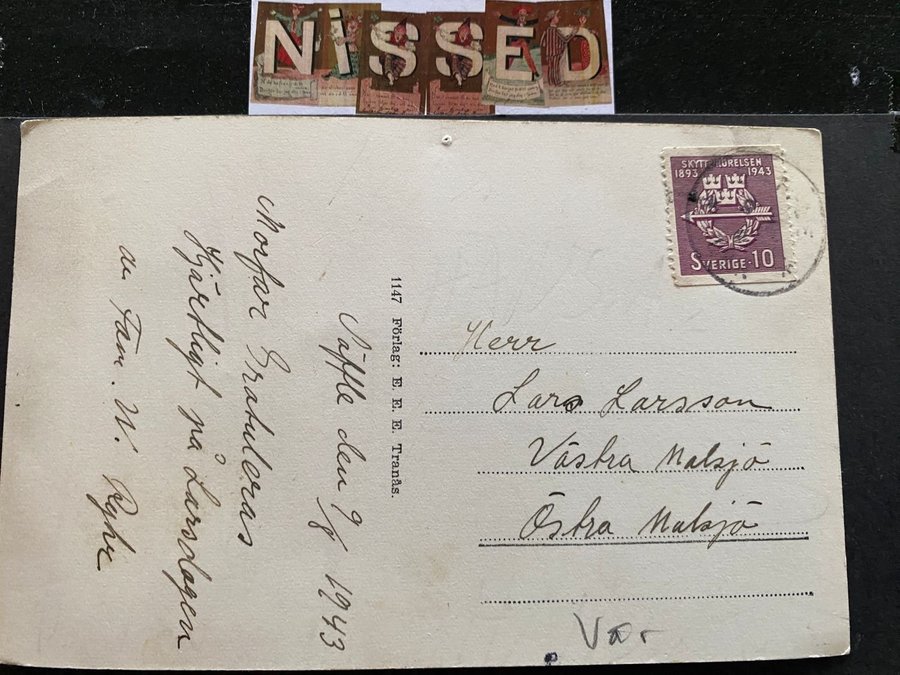 NISSED
SKYTTERÖRELSEN
1893 1943
SVERIGE·10
Säffle den 9/8 1943
Morfar Gratuleras
Hjärtligt på Larsdagen
av Fam. W.
1147 Förlag: E. E. E. Tranås.
Herr
Lars Larsson
Västra Malsjö
Östra Malsjö
Vär